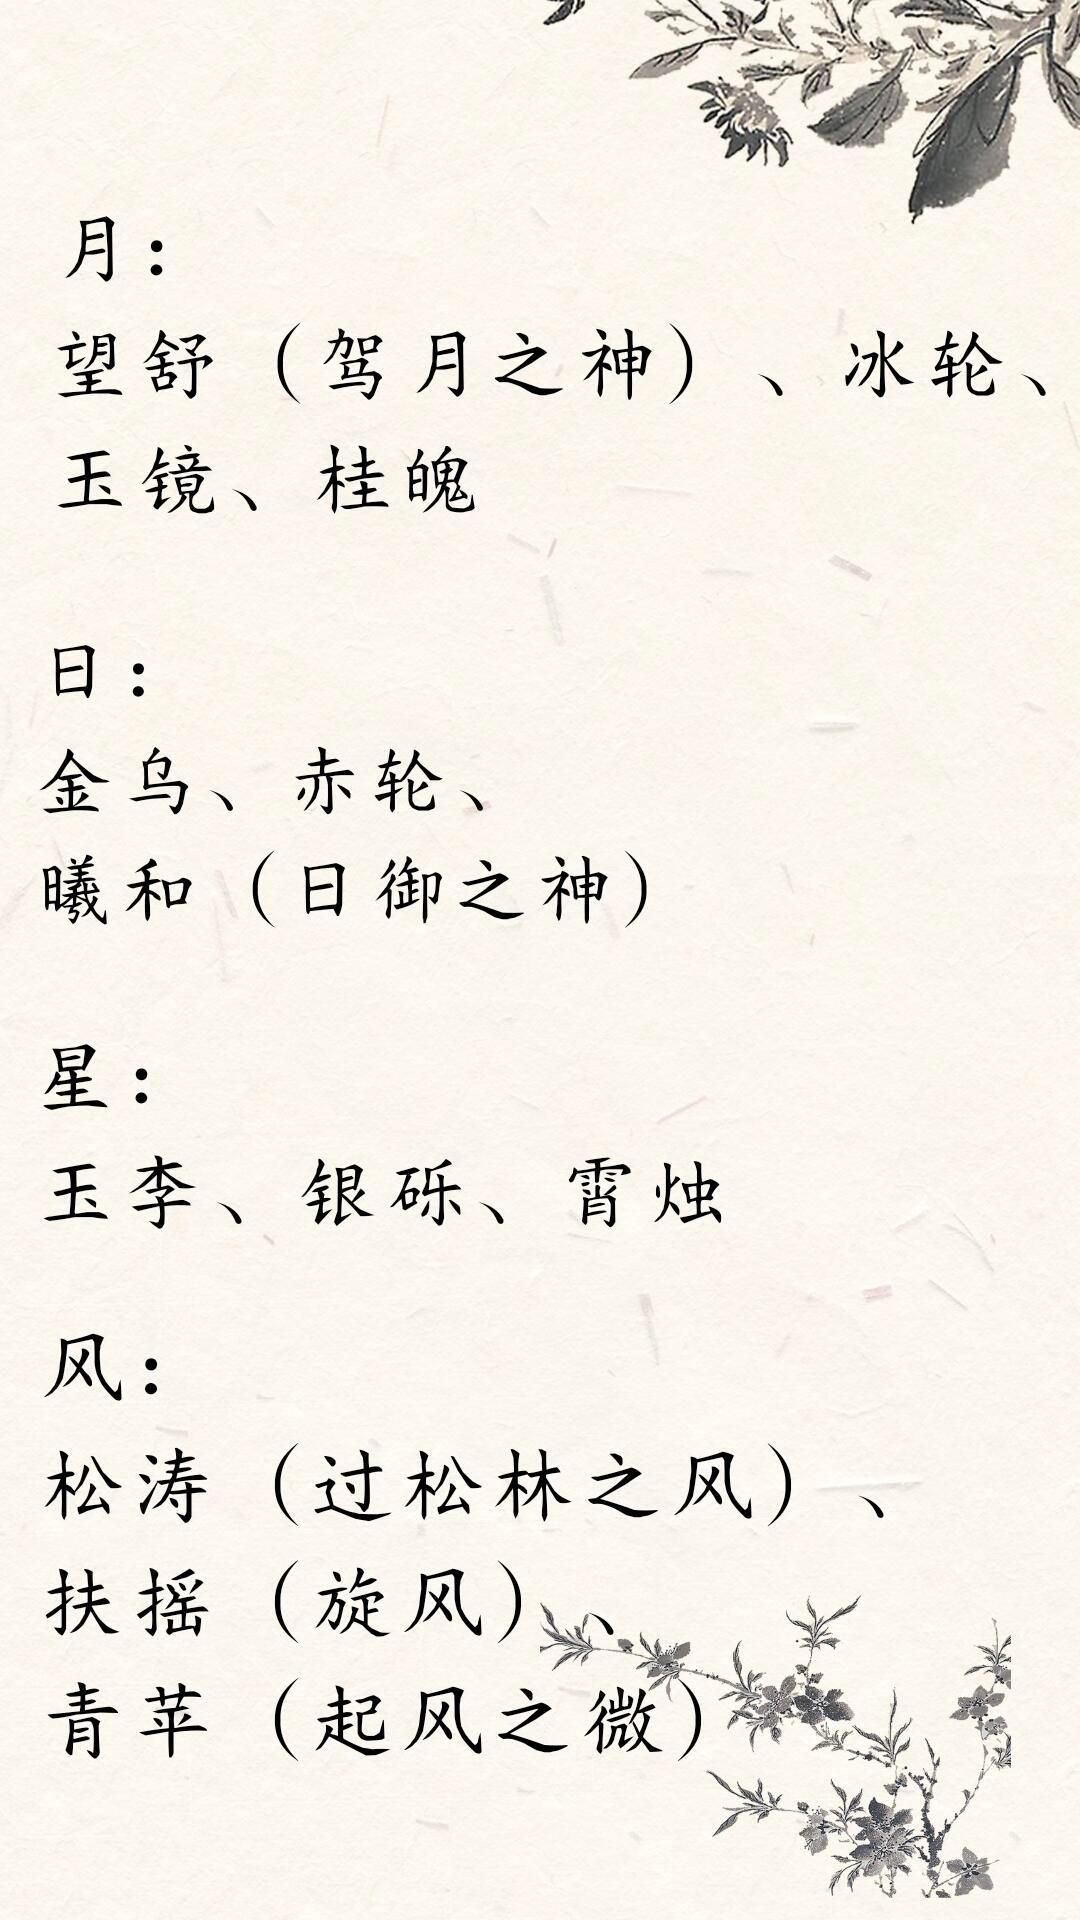 月：
望舒（驾月之神）、冰轮、
玉镜、桂魄
日：
金乌、赤轮、
曦和（日御之神）
星：
玉李、银砾、霄烛
风：
松涛（过松林之风）、
扶摇（旋风）、
青苹（起风之微）